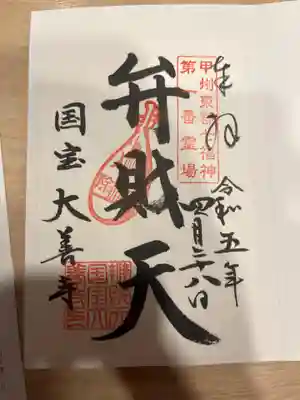 奉拝
甲州東郡七福神
第一番霊場
令和五年
四月二十八日
弁財天
国宝 大善寺